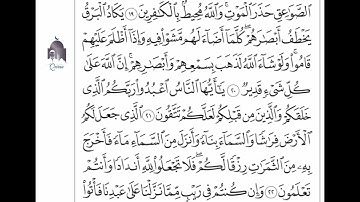 ٱلصَّوَٰعِقِ حَذَرَ ٱلْمَوْتِ ۚ وَٱللَّهُ مُحِيطٌۢ بِٱلْكَٰفِرِينَ ١٩ يَكَادُ ٱلْبَرْقُ
يَخْطَفُ أَبْصَٰرَهُمْ ۖ كُلَّمَآ أَضَآءَ لَهُم مَّشَوْا۟ فِيهِ وَإِذَآ أَظْلَمَ عَلَيْهِمْ
قَامُوا۟ ۚ وَلَوْ شَآءَ ٱللَّهُ لَذَهَبَ بِسَمْعِهِمْ وَأَبْصَٰرِهِمْ ۚ إِنَّ ٱللَّهَ عَلَىٰ
كُلِّ شَىْءٍ قَدِيرٌ ٢٠ يَٰٓأَيُّهَا ٱلنَّاسُ ٱعْبُدُوا۟ رَبَّكُمُ ٱلَّذِى
خَلَقَكُمْ وَٱلَّذِينَ مِن قَبْلِكُمْ لَعَلَّكُمْ تَتَّقُونَ ٢١ ٱلَّذِى جَعَلَ لَكُمُ
ٱلْأَرْضَ فِرَٰشًا وَٱلسَّمَآءَ بِنَآءً وَأَنزَلَ مِنَ ٱلسَّمَآءِ مَآءً فَأَخْرَجَ
بِهِۦ مِنَ ٱلثَّمَرَٰتِ رِزْقًا لَّكُمْ ۖ فَلَا تَجْعَلُوا۟ لِلَّهِ أَندَادًا وَأَنتُمْ
تَعْلَمُونَ ٢٢ وَإِن كُنتُمْ فِى رَيْبٍ مِّمَّا نَزَّلْنَا عَلَىٰ عَبْدِنَا فَأْتُوا۟